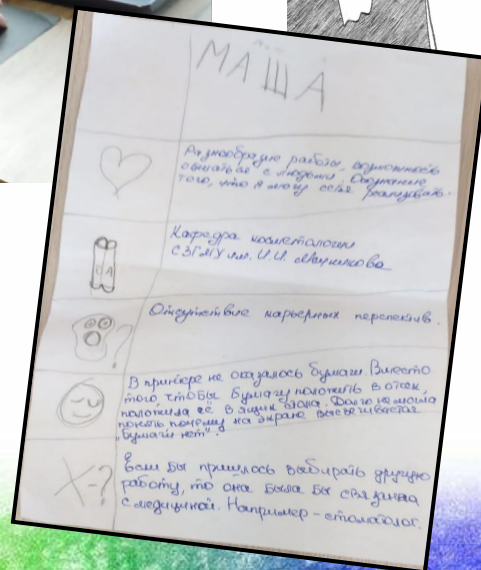 МАША
Разнообразие работы, возможность
общаться с людьми. Осознание
того, что я могу себя реализовать.
Кафедра косметологии
СЗГМУ им. И.И. Мечникова
Отсутствие карьерных перспектив.
?
В принтере не оказалось бумаги. Вместо
того, чтобы бумагу положить в отсек,
положила её в ящик стола. Долго не могла
понять почему на экране высвечивается
"бумаги нет".
Если бы пришлось выбирать другую
X-?
работу, то она была бы связанна
с медициной. Например - стоматолог.